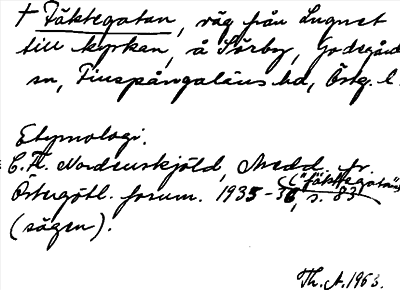 † Fäktegatan, väg från Lugnet
till kyrkan, å Sörby, Godegårds
sn, Finspångaläns hd, Östg. l.
Etymologi.
C. F. Nordenskjöld, Medd. fr.
("fäktegatan")
Östergötl. fornm. 1935-36, s. 83
(sägen).
Th. A. 1963.